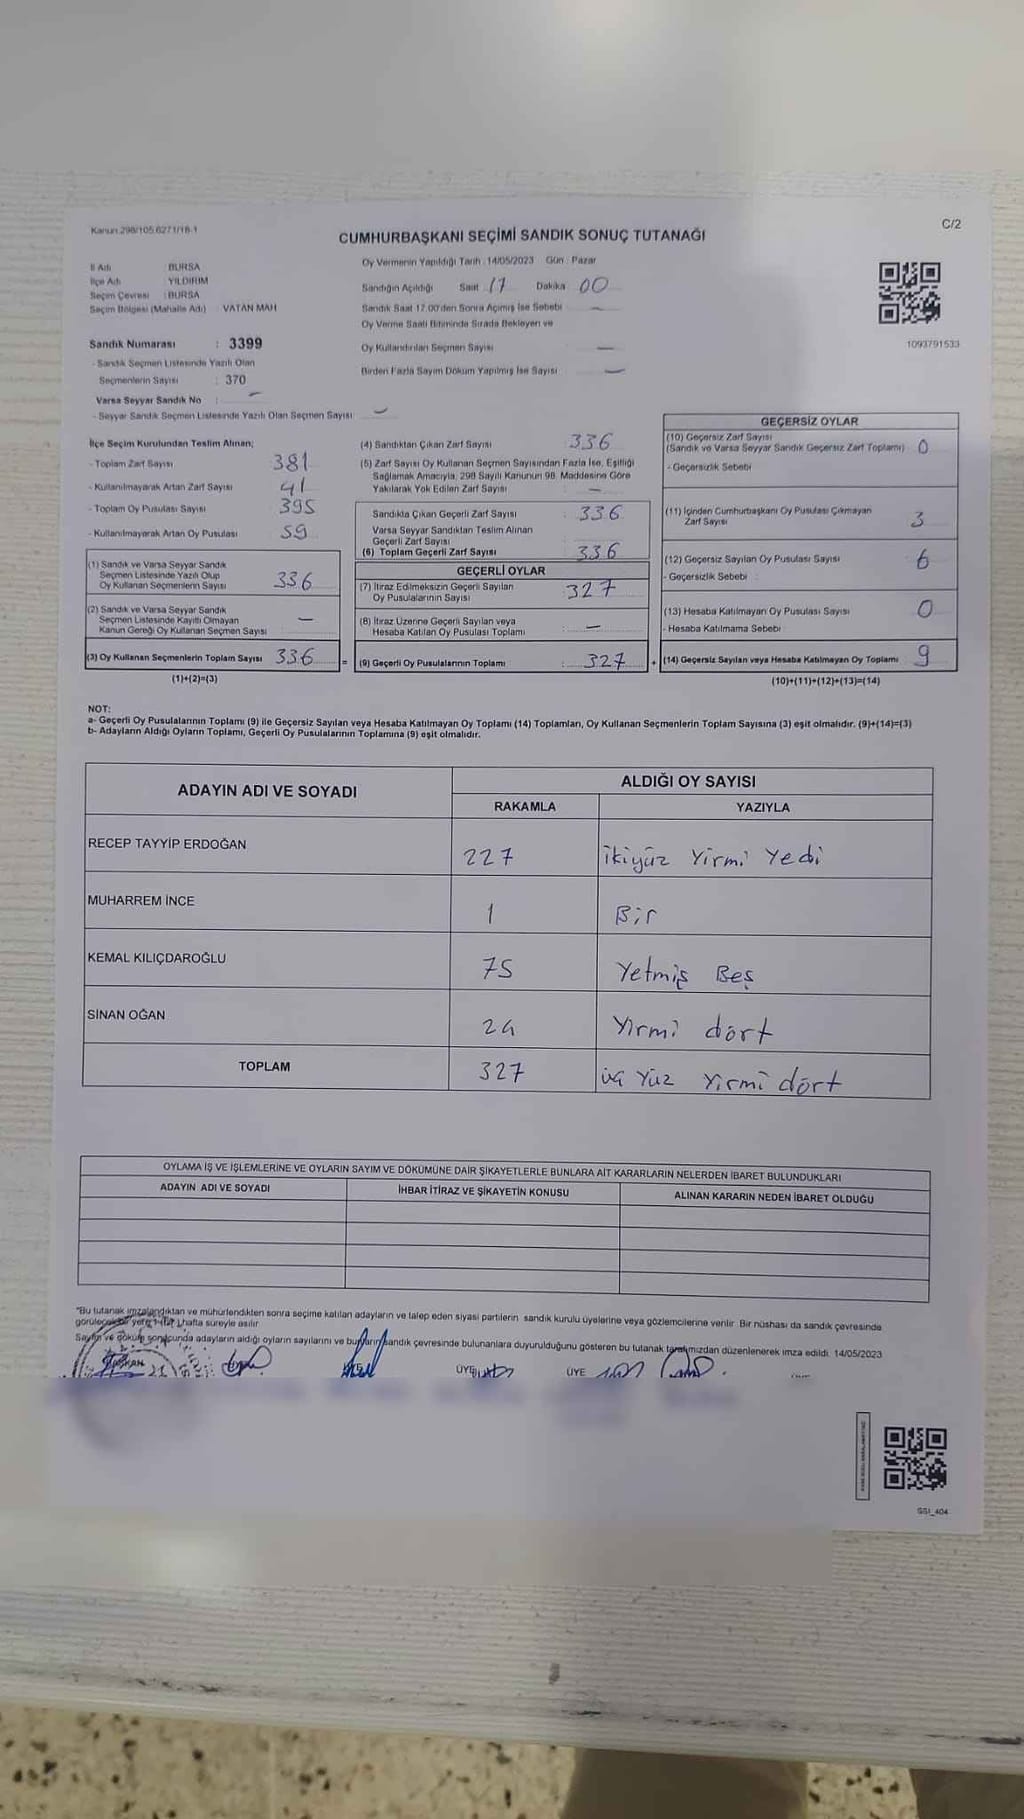 Kanun 298/105.6271/18-1
C/2
CUMHURBAŞKANI SEÇİMİ SANDIK SONUÇ TUTANAĞI
İl Adı : BURSA
İlçe Adı : YILDIRIM
Seçim Çevresi : BURSA
Seçim Bölgesi (Mahalle Adı) : VATAN MAH
Oy Vermenin Yapıldığı Tarih : 14/05/2023 Gün : Pazar
Sandığın Açıldığı Saat 17 Dakika 00
Sandık Saat 17.00'den Sonra Açımış İse Sebebi : —
Oy Verme Saati Bitiminde Sırada Bekleyen ve
Oy Kullandırılan Seçmen Sayısı : —
Birden Fazla Sayım Döküm Yapılmış İse Sayısı : —
1093791533
Sandık Numarası : 3399
- Sandık Seçmen Listesinde Yazılı Olan
Seçmenlerin Sayısı : 370
Varsa Seyyar Sandık No : —
- Seyyar Sandık Seçmen Listesinde Yazılı Olan Seçmen Sayısı : —
İlçe Seçim Kurulundan Teslim Alınan;
- Toplam Zarf Sayısı 381
- Kullanılmayarak Artan Zarf Sayısı 41
- Toplam Oy Pusulası Sayısı 395
- Kullanılmayarak Artan Oy Pusulası 59
(1) Sandık ve Varsa Seyyar Sandık
Seçmen Listesinde Yazılı Olup
Oy Kullanan Seçmenlerin Sayısı 336
(2) Sandık ve Varsa Seyyar Sandık
Seçmen Listesinde Kayıtlı Olmayan
Kanun Gereği Oy Kullanan Seçmen Sayısı —
(3) Oy Kullanan Seçmenlerin Toplam Sayısı 336 =
(1)+(2)=(3)
(4) Sandıktan Çıkan Zarf Sayısı 336
(5) Zarf Sayısı Oy Kullanan Seçmen Sayısından Fazla İse, Eşitliği
Sağlamak Amacıyla, 298 Sayılı Kanunun 98. Maddesine Göre
Yakılarak Yok Edilen Zarf Sayısı : —
Sandıkta Çıkan Geçerli Zarf Sayısı : 336
Varsa Seyyar Sandıktan Teslim Alınan
Geçerli Zarf Sayısı
(6) Toplam Geçerli Zarf Sayısı : 336
GEÇERLİ OYLAR
(7) İtiraz Edilmeksizin Geçerli Sayılan
Oy Pusulalarının Sayısı : 327
(8) İtiraz Üzerine Geçerli Sayılan veya
Hesaba Katılan Oy Pusulası Toplamı : —
(9) Geçerli Oy Pusulalarının Toplamı : 327 +
GEÇERSİZ OYLAR
(10) Geçersiz Zarf Sayısı
(Sandık ve Varsa Seyyar Sandık Geçersiz Zarf Toplamı) 0
- Geçersizlik Sebebi
(11) İçinden Cumhurbaşkanı Oy Pusulası Çıkmayan
Zarf Sayısı 3
(12) Geçersiz Sayılan Oy Pusulası Sayısı 6
- Geçersizlik Sebebi :
(13) Hesaba Katılmayan Oy Pusulası Sayısı 0
- Hesaba Katılmama Sebebi
(14) Geçersiz Sayılan veya Hesaba Katılmayan Oy Toplamı 9
(10)+(11)+(12)+(13)=(14)
NOT:
a- Geçerli Oy Pusulalarının Toplamı (9) ile Geçersiz Sayılan veya Hesaba Katılmayan Oy Toplamı (14) Toplamları, Oy Kullanan Seçmenlerin Toplam Sayısına (3) eşit olmalıdır. (9)+(14)=(3)
b- Adayların Aldığı Oyların Toplamı, Geçerli Oy Pusulalarının Toplamına (9) eşit olmalıdır.
ADAYIN ADI VE SOYADI
ALDIĞI OY SAYISI
RAKAMLA YAZIYLA
RECEP TAYYİP ERDOĞAN 227 ikiyüz Yirmi Yedi
MUHARREM İNCE 1 Bir
KEMAL KILIÇDAROĞLU 75 Yetmiş Beş
SİNAN OĞAN 24 Yirmi dört
TOPLAM 327 üç Yüz Yirmi dört
OYLAMA İŞ VE İŞLEMLERİNE VE OYLARIN SAYIM VE DÖKÜMÜNE DAİR ŞİKAYETLERLE BUNLARA AİT KARARLARIN NELERDEN İBARET BULUNDUKLARI
ADAYIN ADI VE SOYADI İHBAR İTİRAZ VE ŞİKAYETİN KONUSU ALINAN KARARIN NEDEN İBARET OLDUĞU
"Bu tutanak imzalandıktan ve mühürlendikten sonra seçime katılan adayların ve talep eden siyasi partilerin sandık kurulu üyelerine veya gözlemcilerine verilir. Bir nüshası da sandık çevresinde
görülecek bir yere 1 (bir) hafta süreyle asılır
Sayım ve döküm sonucunda adayların aldığı oyların sayılarını ve bunların sandık çevresinde bulunanlara duyurulduğunu gösteren bu tutanak tarafımızdan düzenlenerek imza edildi. 14/05/2023
BAŞKAN ÜYE ÜYE
SSI_404